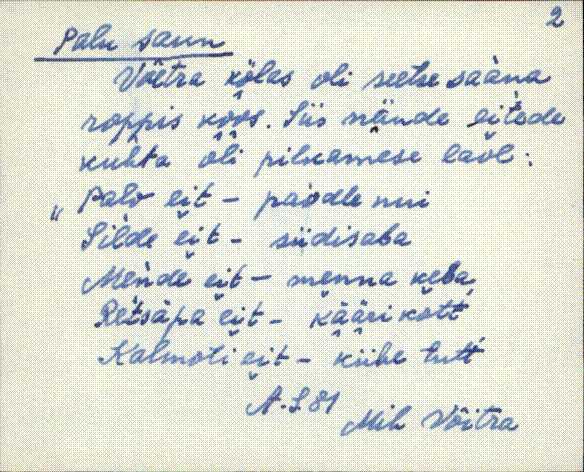 2
Palu saun
Võitra kõlas oli seetse saàna
roppis koos. Siis nände eitede
kuhta oli pilkamese laol:
"Palo eit - paodle nui
Silde eit - siidisaba
Mende eit - menna keba
Retsäpa eit - kääri kott
Kalmoti eit - kübe tutt
A. S. 81
Mih Võitra